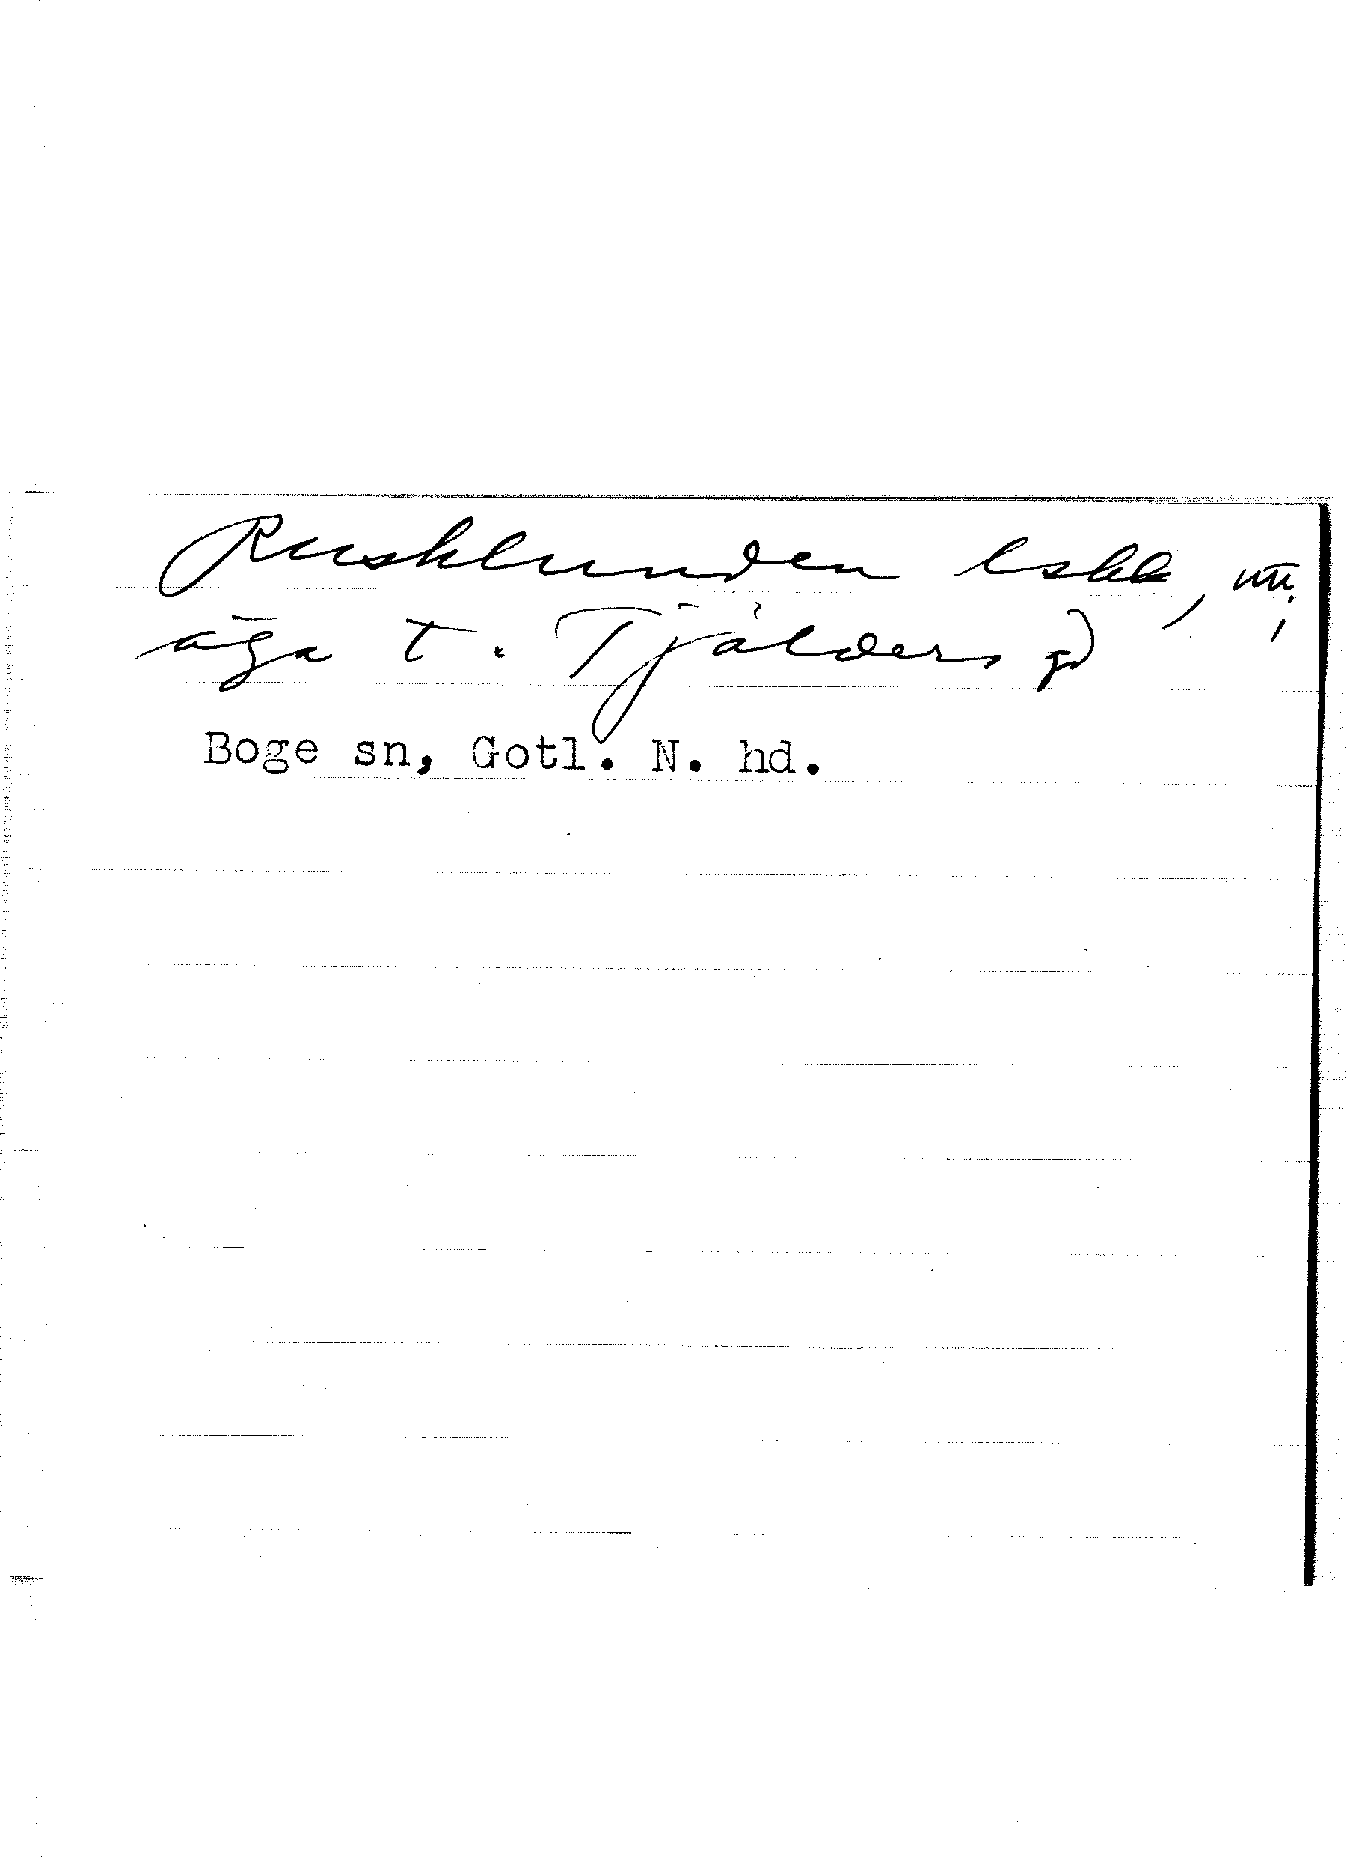 Rusklunden lskk,
äga t. Tjälders gd
Boge sn, Gotl. N. hd.